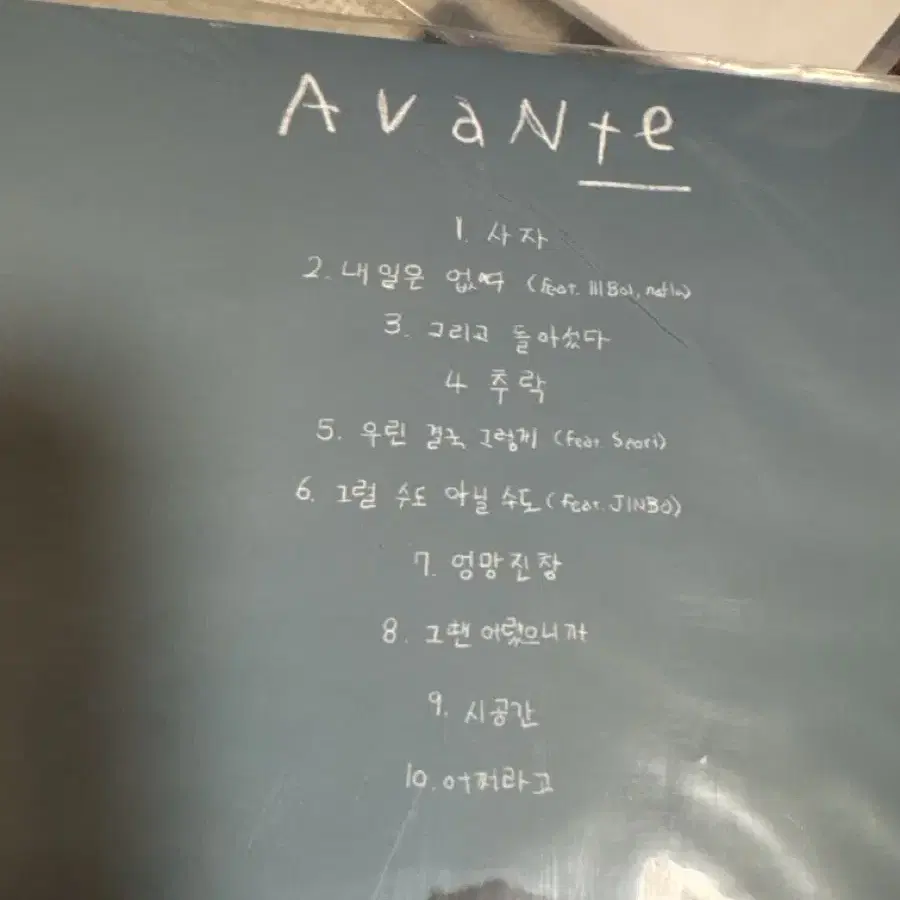 AvaNte
1. 사자
2. 내일은 없어 (feat. lllBoi, nafla)
3. 그리고 돌아섰다
4 추락
5. 우린 결국 그렇게 (feat. Seori)
6. 그럴 수도 아닐 수도 (feat. JINBO)
7. 엉망진창
8. 그땐 어렸으니까
9. 시공간
10. 어쩌라고